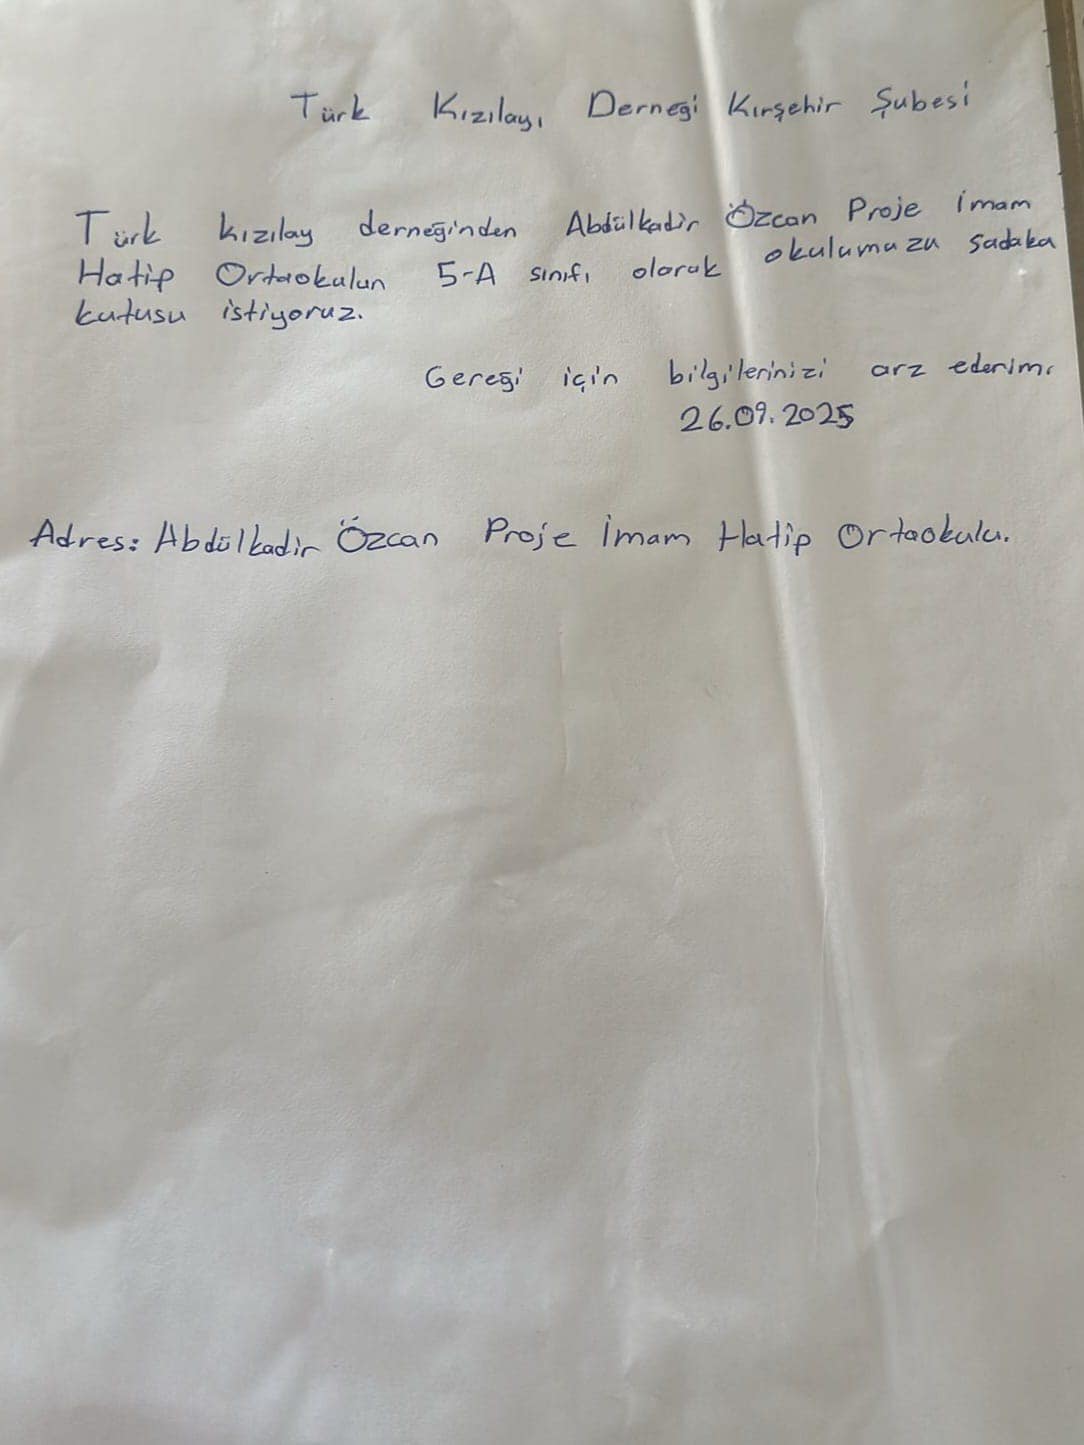 Türk Kızılayı Derneği Kırşehir Şubesi
Türk kızılay derneğinden Abdülkadir Özcan Proje İmam
Hatip Ortaokulun 5-A sınıfı olarak okulumuzu sadaka
kutusu istiyoruz.
Gereği için bilgilerinizi arz ederim.
26.09.2025
Adres: Abdülkadir Özcan Proje İmam Hatip Ortaokulu.